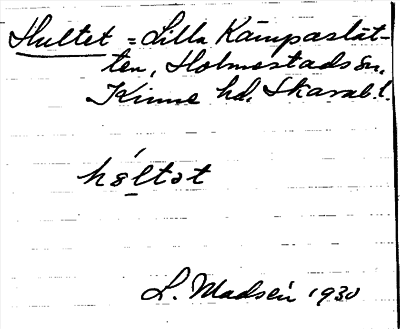 Hultet = Lilla Kämpaslät-
ten, Holmestads sn,
Kinne hd, Skarab. l.
hɵ́ltət
L. Madsén 1930